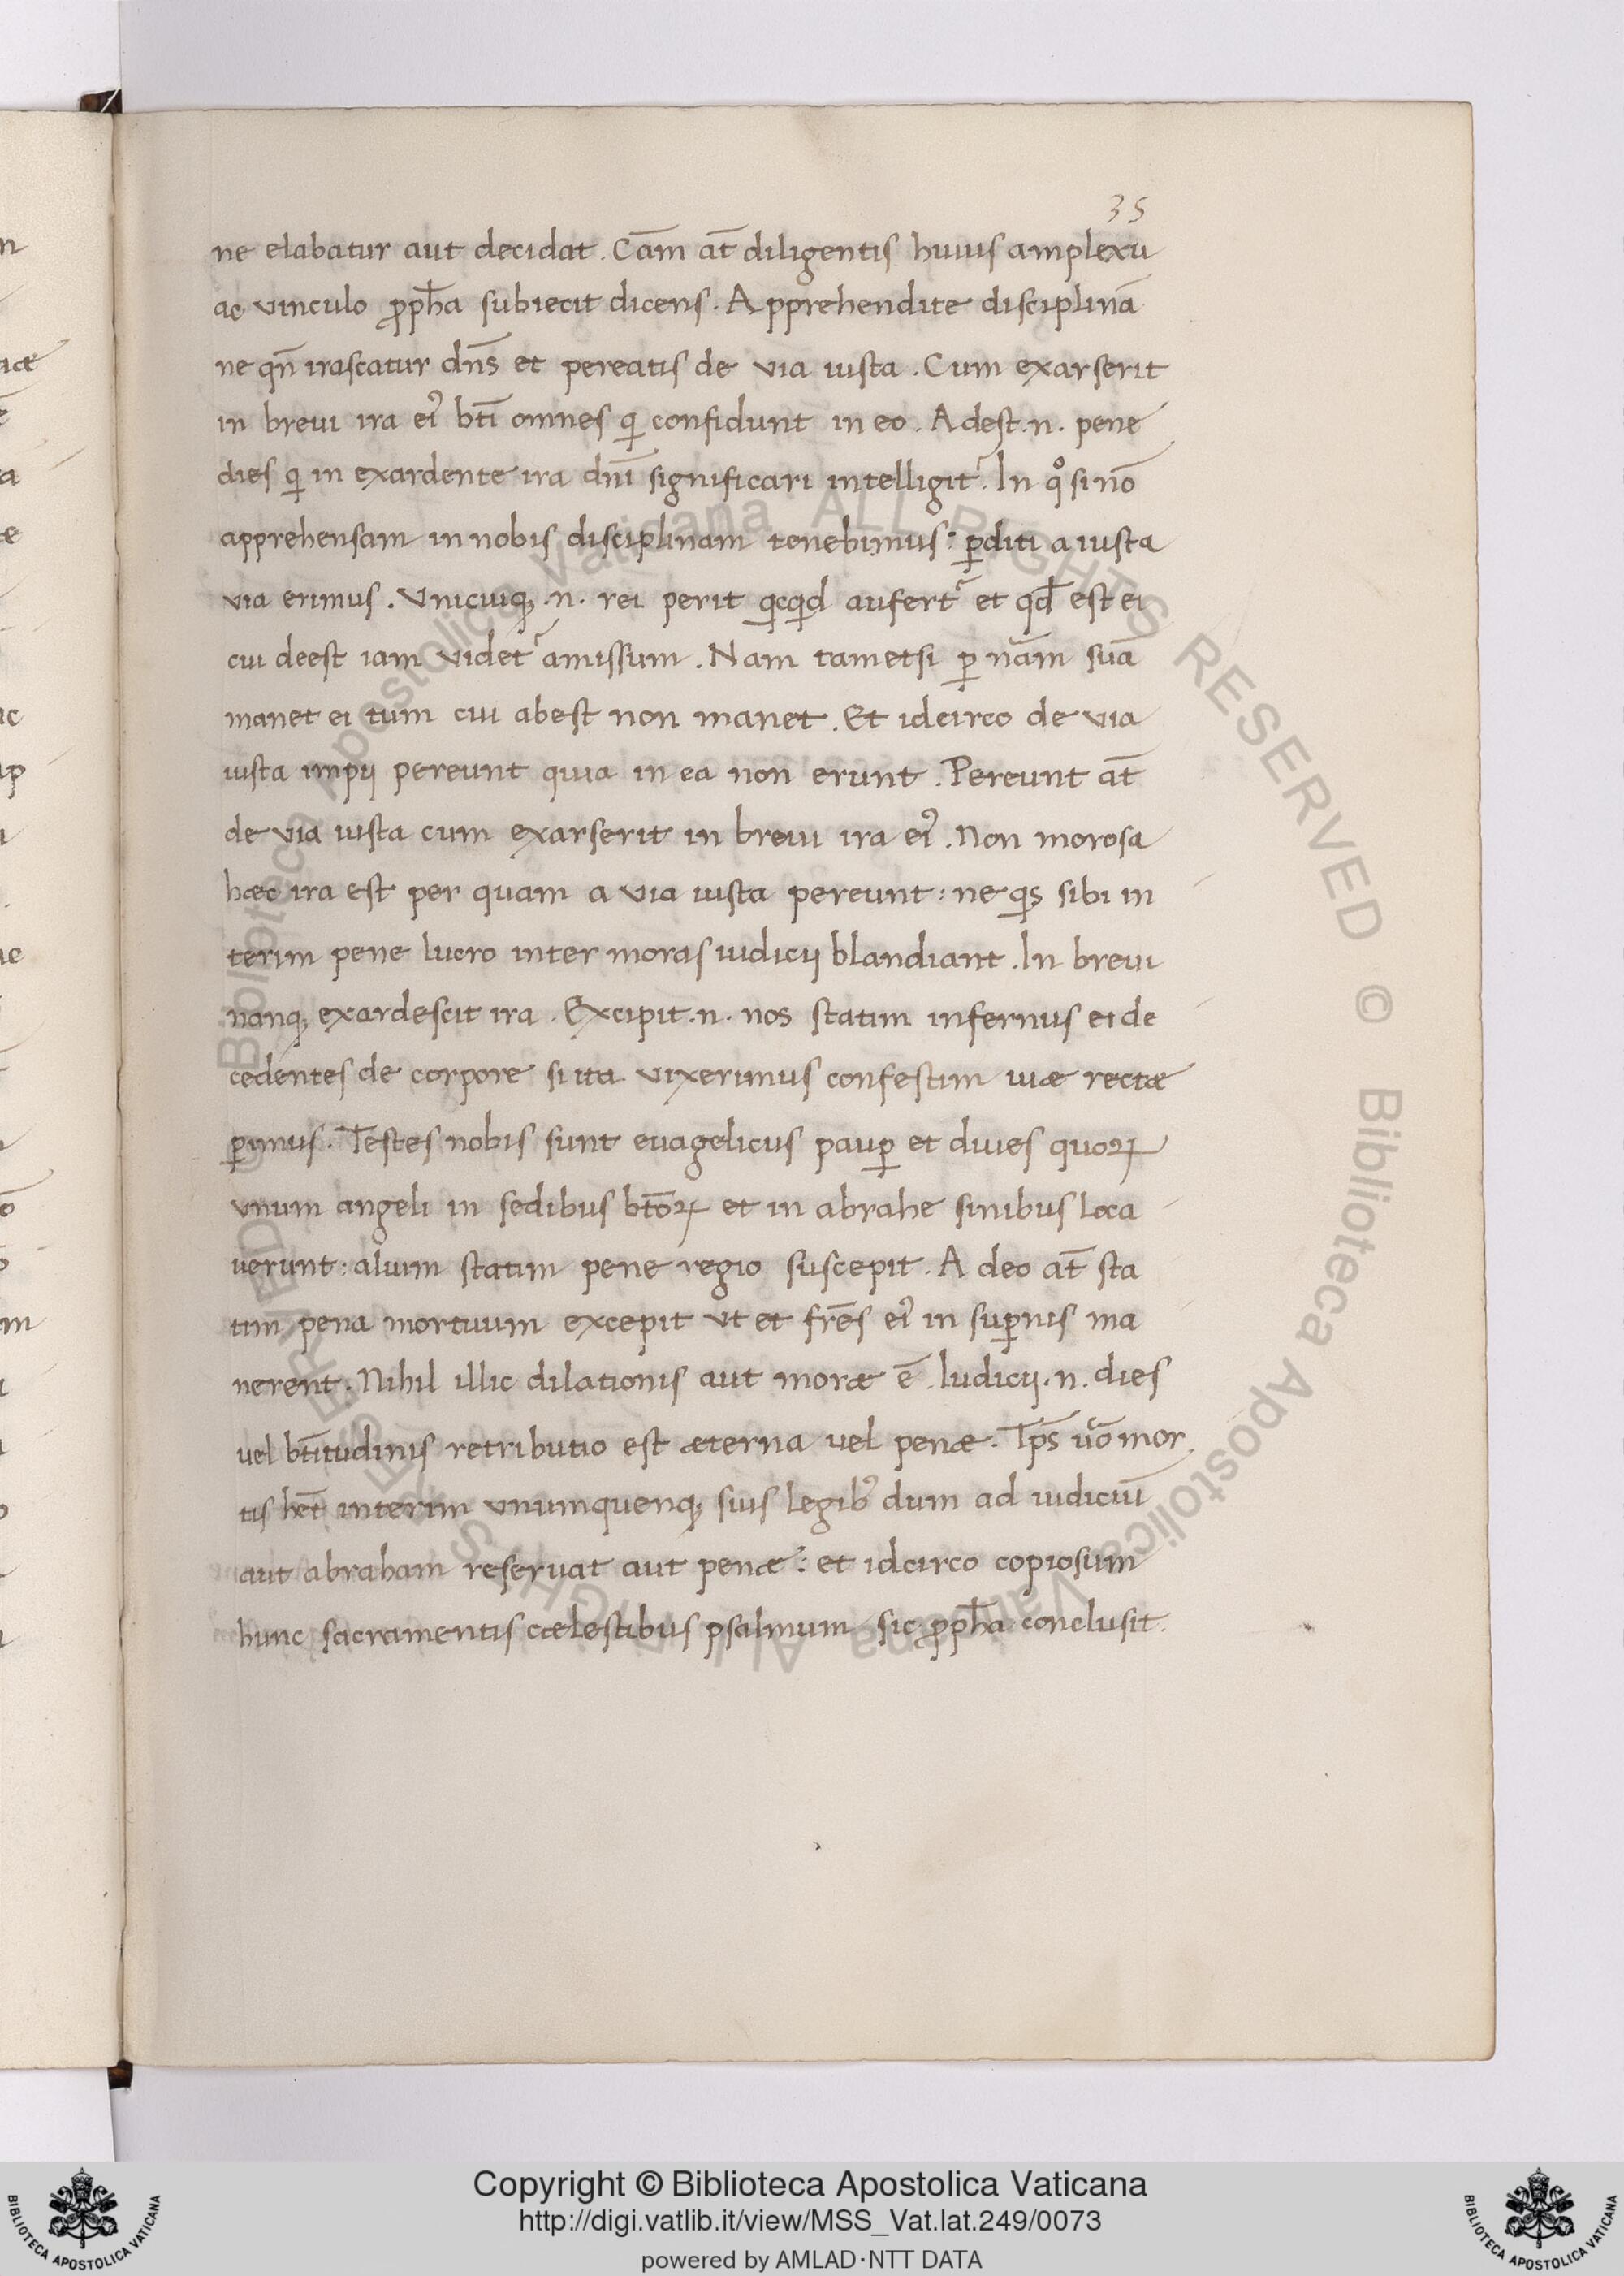 35
ne elabatur aut decidat. Cām at̄ diligentis huius amplexu
ac vinculo ꝓph̄a subiecit dicens. Apprehendite disciplinā
ne qn̄ irascatur dn̄s et pereatis de via iusta. Cum exarserit
in breui ira ei᾽ bt̄i omnes qi confidunt in eo. Adest .n. pene
dies qi in exardente ira dn̄i significari intelligit᾽. In qo si nō
apprehensam in nobis disciplinam tenebimus: ꝑditi a iusta
via erimus. Vnicuiqꝫ .n. rei perit qicqid aufert᾽ et qd̄ est ei
cui deest iam videt᾽ amissum. Nam tametsi ꝑ nām suā
manet ei tum cui abest non manet. Et idcirco de via
iusta impij pereunt quia in ea non erunt. Pereunt at̄
de via iusta cum exarserit in breui ira ei᾽. Non morosa
hæc ira est per quam a via iusta pereunt: ne qis sibi in
terim pene lucro inter moras iudicij blandiant. In breui
nanqꝫ exardescit ira. Excipit .n. nos statim infernus ei de
cedentes de corpore si ita vixerimus confestim uiæ rectæ
ꝑimus. Testes nobis sunt euagelicus pauꝑ et diues quoꝝ
vnum angeli in sedibus bt̄oꝝ et in abrahe sinibus loca
uerunt: alium statim pene regio suscepit. A deo at̄ sta
tim pena mortuum excepit vt et fr̄es ei᾽ in suꝑnis ma
nerent. Nihil illic dilationis aut moræ ē. Iudicij .n. dies
vel bt̄itudinis retributio est æterna vel penæ. Tp̄s uo᾽ mor
tis het̄ interim vnumquenqꝫ suis legib᾽ dum ad iudiciū
aut abraham reseruat aut penæ: et idcirco copiosum
hunc sacramentis cælestibus psalmum sic ꝓph̄a conclusit.
Copyright © Biblioteca Apostolica Vaticana
http://digi.vatlib.it/view/MSS_Vat.lat.249/0073
powered by AMLAD·NTT DATA
BIBLIOTECA APOSTOLICA VATICANA
BIBLIOTECA APOSTOLICA VATICANA